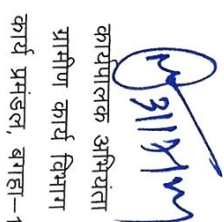 कार्यपालक अभियंता
ग्रामीण कार्य विभाग
कार्य प्रमंडल, बगहा–1